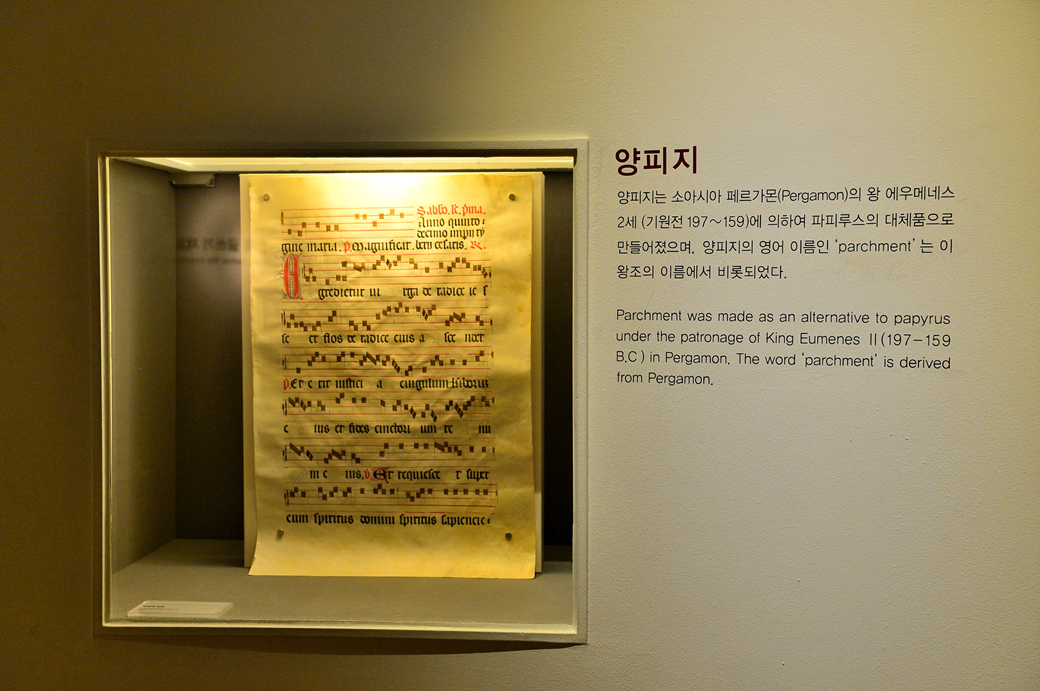 양피지
양피지는 소아시아 페르가몬(Pergamon)의 왕 에우메네스
2세 (기원전 197~159)에 의하여 파피루스의 대체품으로
만들어졌으며, 양피지의 영어 이름인 ‘parchment’ 는 이
왕조의 이름에서 비롯되었다.
Parchment was made as an alternative to papyrus
under the patronage of King Eumenes II(197-159
B.C) in Pergamon. The word ‘parchment’ is derived
from Pergamon.
Anno quinto
decimo imperii
gine maria. Magnificat. berii cesaris.
Egredietur vi rga de radice ie s
se et flos de radice eius a sce ndet
Et e rit iustici a cingulum lumborum
e ius et fides cinctori um re nu
m e ius. Et requiesce t super
eum spiritus domini spiritus sapiencie